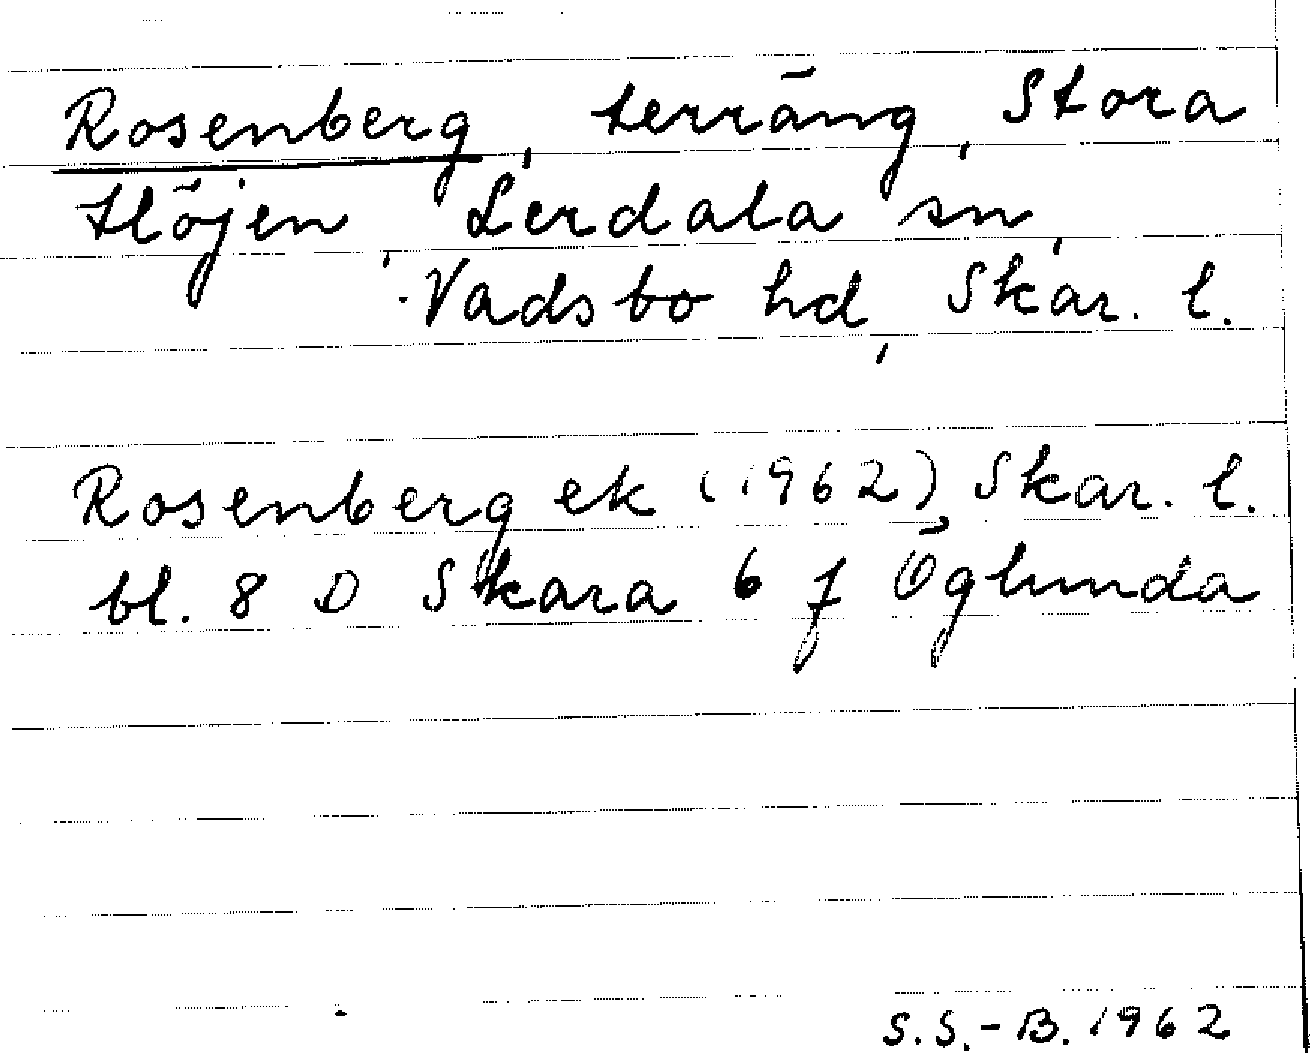 Rosenberg, terräng, Stora
Höjen, Lerdala sn,
Vadsbo hd, Skar. l.
Rosenberg ek (1962), Skar. l.
bl. 8 D Skara 6 f Öglunda
S.S.-B. 1962